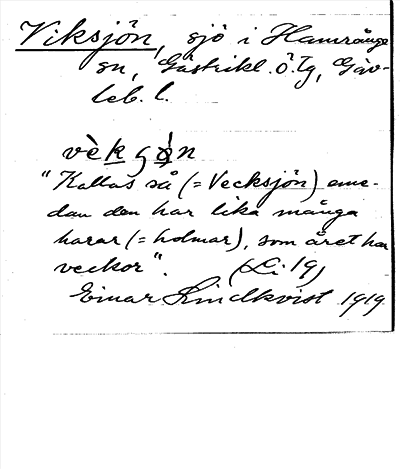 Viksjön, sjö i Hamrånge
sn, Gästrikl. ö. Tg, Gäv-
leb. l.
"Kallas så (= Vecksjön) eme-
dan den har lika många
harar (= holmar), som året har
veckor".
Einar Lindkvist 1919